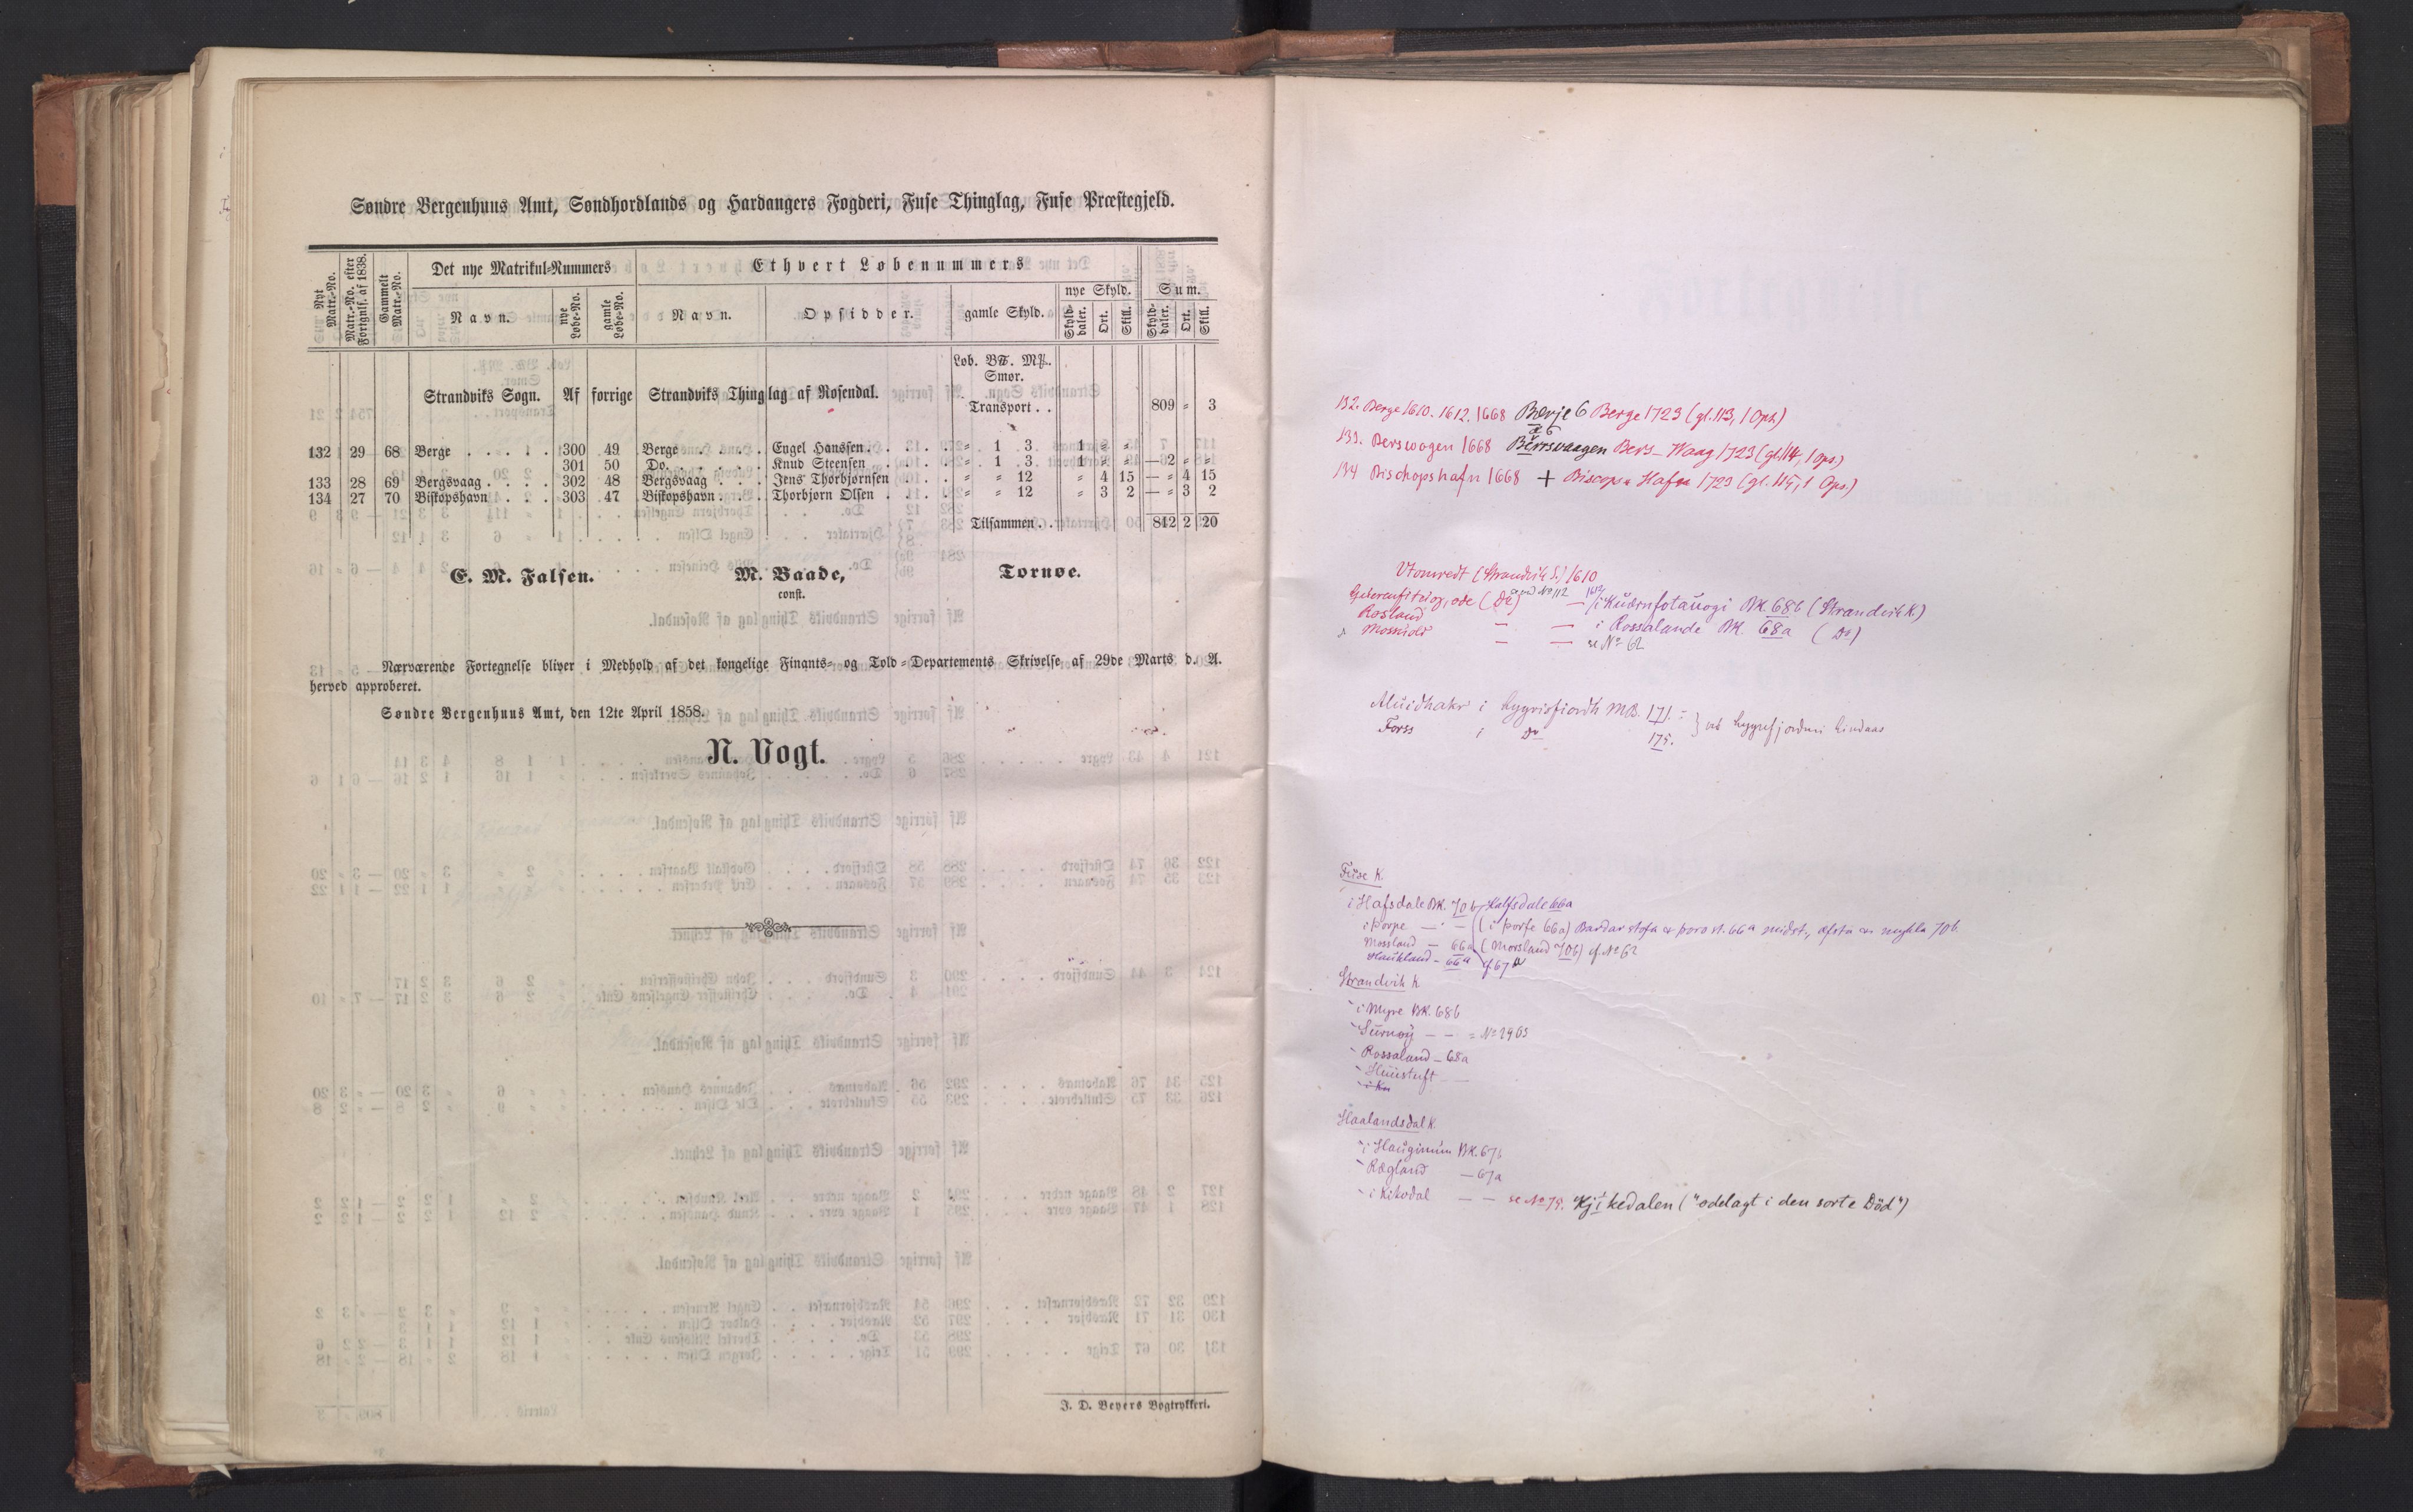 Søndre Bergenhuus Amt, Søndhordlands og Hardangers Fogderi, Fuse Thinglag, Fuse Præstegjeld.
Nyt Matr.-No. Matr.-No. efter Fortegnelf. af 1838. Gammelt Matr.-No. Det nye Matrikul-Nummers Ethvert Løbenummers
Navn. nye Løbe-No. gamle Løbe-No. Navn. Opsidder. gamle Skyld. nye Skyld. Sum.
Skylddaler. Ort. Skill. Skylddaler. Ort. Skill.
Løb. B℔. M℔.
Smør.
Strandviks Sogn. Af forrige Strandviks Thinglag af Rosendal.
Transport . . 809 " 3
132 29 68 Berge . . . . 300 49 Berge . . . . Engel Hanssen . . . . " 1 3 1 " "
301 50 Do. . . . . . Knud Steensen . . . . " 1 3 1 " " — 2 " "
133 28 69 Bergsvaag . . . . 302 48 Bergsvaag . . . Jens Thorbjørnsen . . . " " 12 " 4 15 — " 4 15
134 27 70 Biskopshavn . . . 303 47 Biskopshavn . . . Thorbjørn Olsen . . . . " " 12 " 3 2 — " 3 2
Tilsammen . . 812 2 20
E. M. Falsen. M. Baade, Tornøe.
const.
Nærværende Fortegnelse bliver i Medhold af det kongelige Finants- og Told-Departements Skrivelse af 29de Marts d. A.
herved approberet.
Søndre Bergenhuus Amt, den 12te April 1858.
N. Vogt.
J. D. Beyers Bogtrykkeri.
132. Berge 1610. 1612. 1668 Bærje 6 Berge 1723 (gl. 113, 1 Ops.)
133. Berswogen 1668 Bërrsvaagen Bers-Waag 1723 (gl. 114, 1 Ops.)
134 Bischopshafn 1668 + Biscops Hafn 1723 (gl. 115, 1 Ops.)
Vtomredt (Strandvik S.) 1610
øde (Do) No 112 — i Kuærnfotauogi BK. 68b (Strandvik K)
Rosland — — i Rossalande BK. 68a (Do)
Moskiold — — se No 62
Aluidhakr i Lygrisfiordh MB. 171.
Forss i Do 175. } ved Lygrefjorden Lindaas
Fuse K.
i Hafsdale BK. 70b, Halfsdale 66a
i Þorpe — - — (i Þorfe 66a) Bardarstofa & Þorost. 66a midst., øfsta & mykla 70b.
Mossland — 66a (Morsland 70b) cf. No 62
Haukland — 66a cf. 67a
Strandvik K
i Myre BK. 68b
Surnøy — — = No 29 65
Rossaland — 68a
Huustuft —
i Ku
Haalandsdal K.
i Hauginum BK. 67b
Rægland — 67a
i Kikodal — — se No 75. Kjikedalen ("ødelagt i den sorte Död")